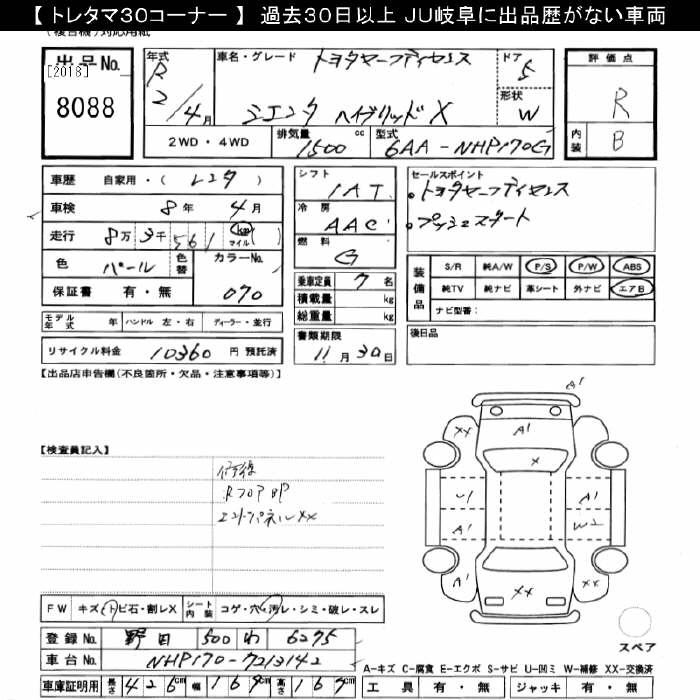 【 トレタマ30コーナー 】 過去30日以上 JU岐阜に出品歴がない車両
(複合機)対応用紙
出品No. [2018] 8088
年式 R 2/4月
車名・グレード トヨタセーフティセンス
シエンタ ハイブリッド X
ドア 5
形状 W
2WD ・ 4WD
排気量 1500 cc
型式 6AA-NHP170G
評価点 R
内装 B
車歴 自家用・( レンタ )
車検 8年 4月
走行 8万 3千 561 km マイル ( )
色 パール 色替 カラーNo. 070
保証書 有・無
モデル年式 年 ハンドル 左・右 ディーラー・並行
リサイクル料金 10360 円 預託済
シフト 1AT
冷房 AAC
燃料 G
乗車定員 7 名
積載量 kg
総重量 kg
書類期限 11月30日
セールスポイント
・トヨタセーフティセンス
・プッシュスタート
装備品 S/R 純A/W P/S P/W ABS
純TV 純ナビ 革シート 外ナビ エアB
ナビ型番:
後日品
【出品店申告欄(不良箇所・欠品・注意事項等)】
【検査員記入】
修復
RフロアBP
エンドパネルXX
A1
XX
A1
X
U1
A1
A1
W2
A1
XX
A1
スペア
FW キズ・トビ石・割レX シート内装 コゲ・穴・汚レ・シミ・破レ・スレ
登録No. 野田 500 わ 6275
車台No. NHP170-7213142
車庫証明用 長さ 426cm 幅 169cm 高さ 167cm
A-キズ C-腐食 E-エクボ S-サビ U-凹ミ W-補修 XX-交換済
工具 有・無 ジャッキ 有・無